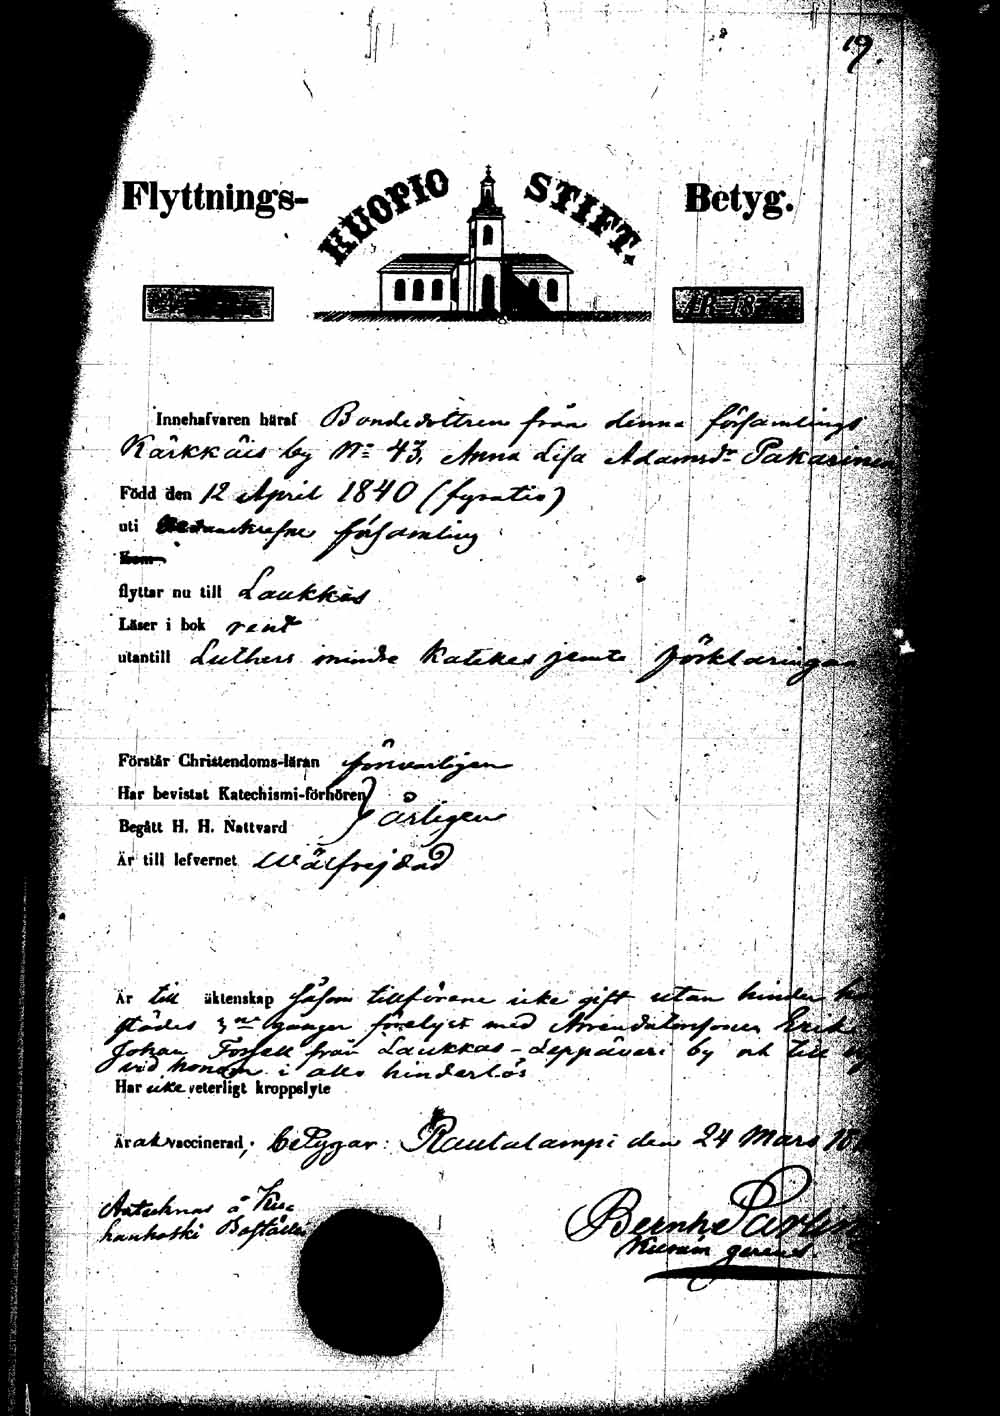 19.
Flyttnings- HUOPIO STIFT. Betyg.
ÅR 18
Innehafvaren häraf Bondedottren från denna församlings
Kärkkäis by No 43, Anna Lisa Adamsdr Pakarinen
Född den 12 April 1840 (fyratio)
uti församling
flyttar nu till Laukkas
Läser i bok rent
utantill Luthers mindre Katekes jemte förklaringen
Förstår Christendoms-läran försvarligen
Har bevistat Katechismi-förhören
Begått H. H. Nattvard årligen
Är till lefvernet wälfrejdad
Är till äktenskap såsom tillförene icke gift utan hinder
städes 3ne gånger förelyst med Arrendatorssonen Erik
Johan Forsell från Laukkas-Leppäveri by och till
vid honom i allo hinderlös
Har icke veterligt kroppslyte
Är ak vaccinerad; betygar: Rautalampi den 24 Mars 18
Antecknas å
Boställe
Bernh